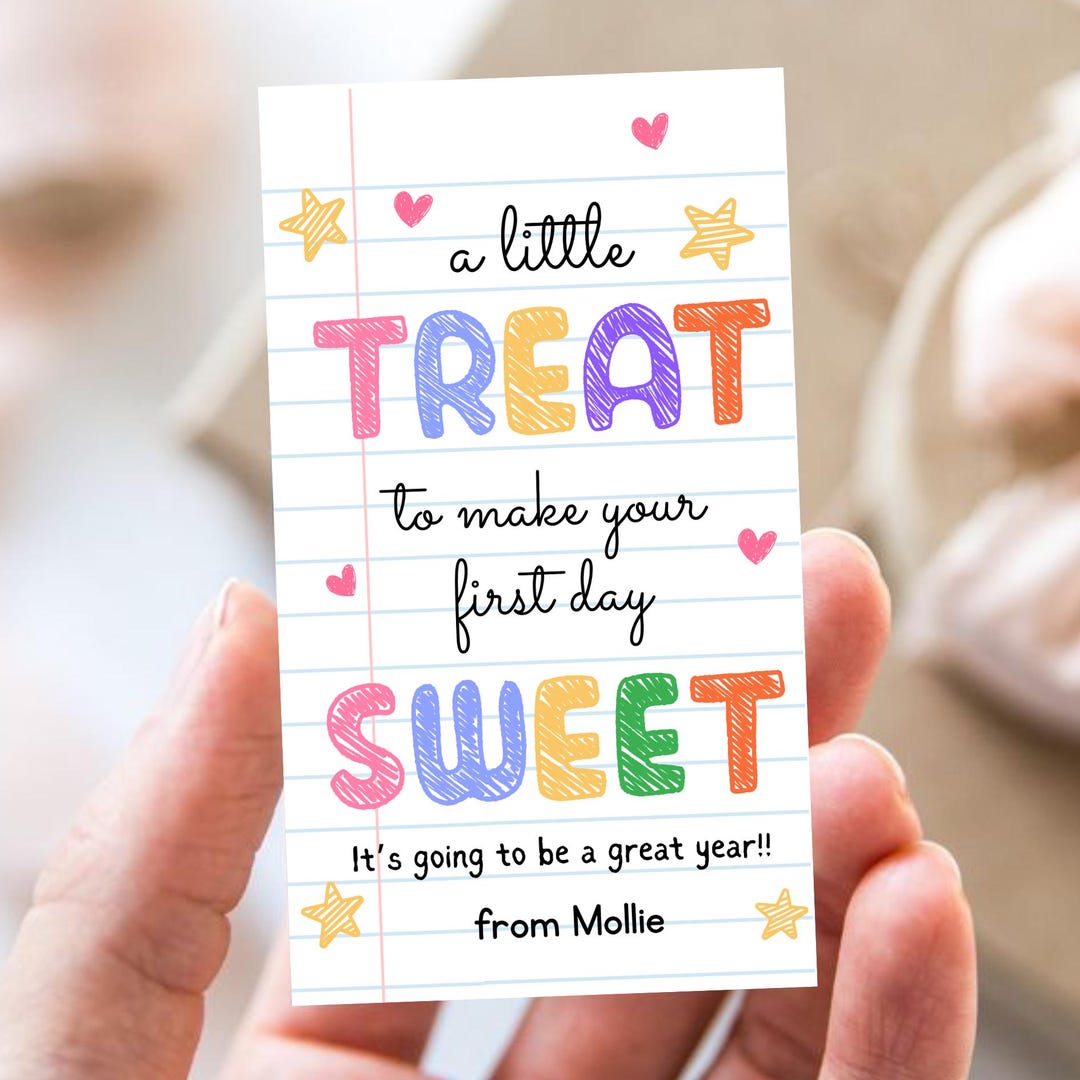 a little
TREAT
to make your
first day
SWEET
It's going to be a great year!!
from Mollie